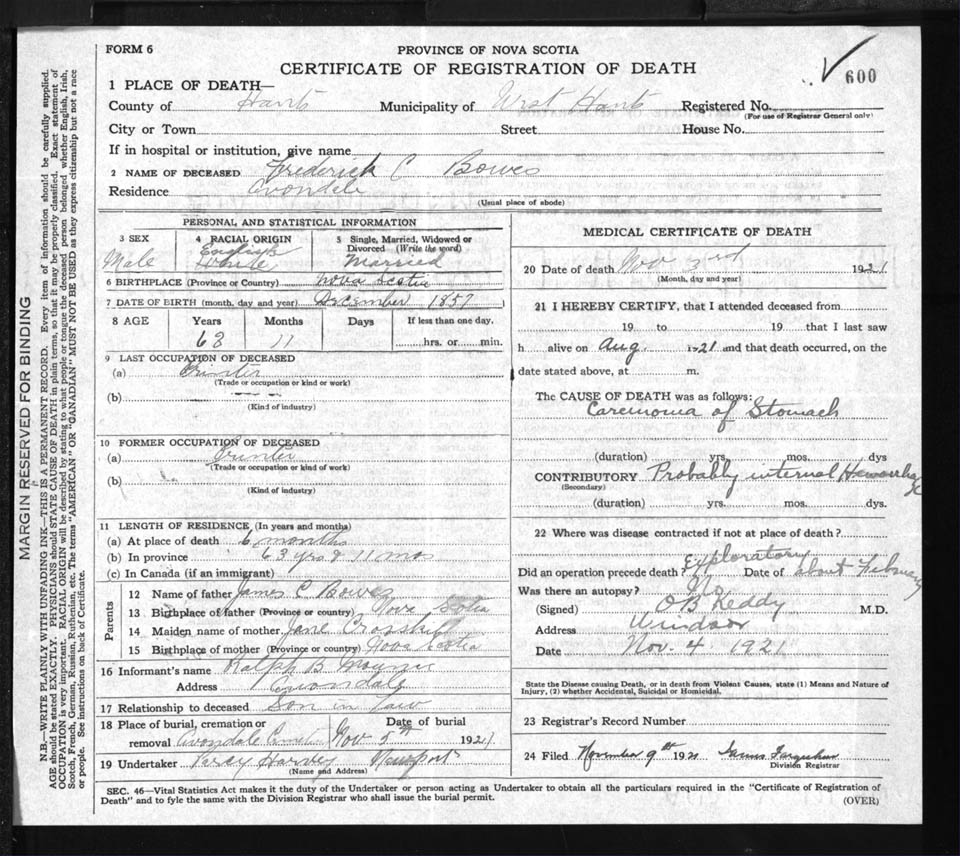 FORM 6
PROVINCE OF NOVA SCOTIA
CERTIFICATE OF REGISTRATION OF DEATH
600
1 PLACE OF DEATH—
County of Hants Municipality of West Hants Registered No.
(For use of Registrar General only)
City or Town Street House No.
If in hospital or institution, give name
2 NAME OF DECEASED Frederick C Bowes
Residence Avondale
(Usual place of abode)
PERSONAL AND STATISTICAL INFORMATION
3 SEX Male
4 RACIAL ORIGIN English White
5 Single, Married, Widowed or Divorced (Write the word) Married
6 BIRTHPLACE (Province or Country) Nova Scotia
7 DATE OF BIRTH (month, day and year) December 1857
8 AGE Years Months Days If less than one day,
63 11 hrs. or min.
9 LAST OCCUPATION OF DECEASED
(a) Printer
(Trade or occupation or kind or work)
(b)
(Kind of industry)
10 FORMER OCCUPATION OF DECEASED
(a) Printer
(Trade or occupation or kind or work)
(b)
(Kind of industry)
11 LENGTH OF RESIDENCE (In years and months)
(a) At place of death 6 months
(b) In province 63 yrs & 11 mos
(c) In Canada (if an immigrant)
Parents
12 Name of father James C Bowes
13 Birthplace of father (Province or country) Nova Scotia
14 Maiden name of mother Jane
15 Birthplace of mother (Province or country) Nova Scotia
16 Informant's name Ralph B
Address Avondale
17 Relationship to deceased Son in law
18 Place of burial, cremation or Date of burial
removal Avondale Nov 5th 1921
19 Undertaker Percy Harvey Newport
(Name and Address)
MEDICAL CERTIFICATE OF DEATH
20 Date of death Nov 3rd 1921
(Month, day and year)
21 I HEREBY CERTIFY, that I attended deceased from
19 to 19 that I last saw
h alive on Aug. 1921 and that death occurred, on the
date stated above, at m.
The CAUSE OF DEATH was as follows:
Carcinoma of Stomach
(duration) yrs. mos. dys
CONTRIBUTORY Probably internal Hemorrhage
(Secondary)
(duration) yrs. mos. dys.
22 Where was disease contracted if not at place of death?
Did an operation precede death? Exploratory Date of about February
Was there an autopsy? No
(Signed) O B Keddy M.D.
Address Windsor
Date Nov. 4 1921
State the Disease causing Death, or in death from Violent Causes, state (1) Means and Nature of
Injury, (2) whether Accidental, Suicidal or Homicidal.
23 Registrar's Record Number
24 Filed November 9th 1921
Division Registrar
SEC. 46—Vital Statistics Act makes it the duty of the Undertaker or person acting as Undertaker to obtain all the particulars required in the "Certificate of Registration of
Death" and to fyle the same with the Division Registrar who shall issue the burial permit.
(OVER)
MARGIN RESERVED FOR BINDING
N.B.—WRITE PLAINLY WITH UNFADING INK—THIS IS A PERMANENT RECORD. Every item of information should be carefully supplied.
AGE should be stated EXACTLY. PHYSICIANS should STATE CAUSE OF DEATH in plain terms, so that it may be properly classified. Exact statement of
OCCUPATION is very important. RACIAL ORIGIN will be described by stating to what people or tongue the deceased person belonged whether English, Irish,
Scotch, French, German, Russian, Ruthenian, etc. The terms "AMERICAN" OR "CANADIAN" MUST NOT BE USED as they express citizenship but not a race
or people. See instructions on back of Certificate.